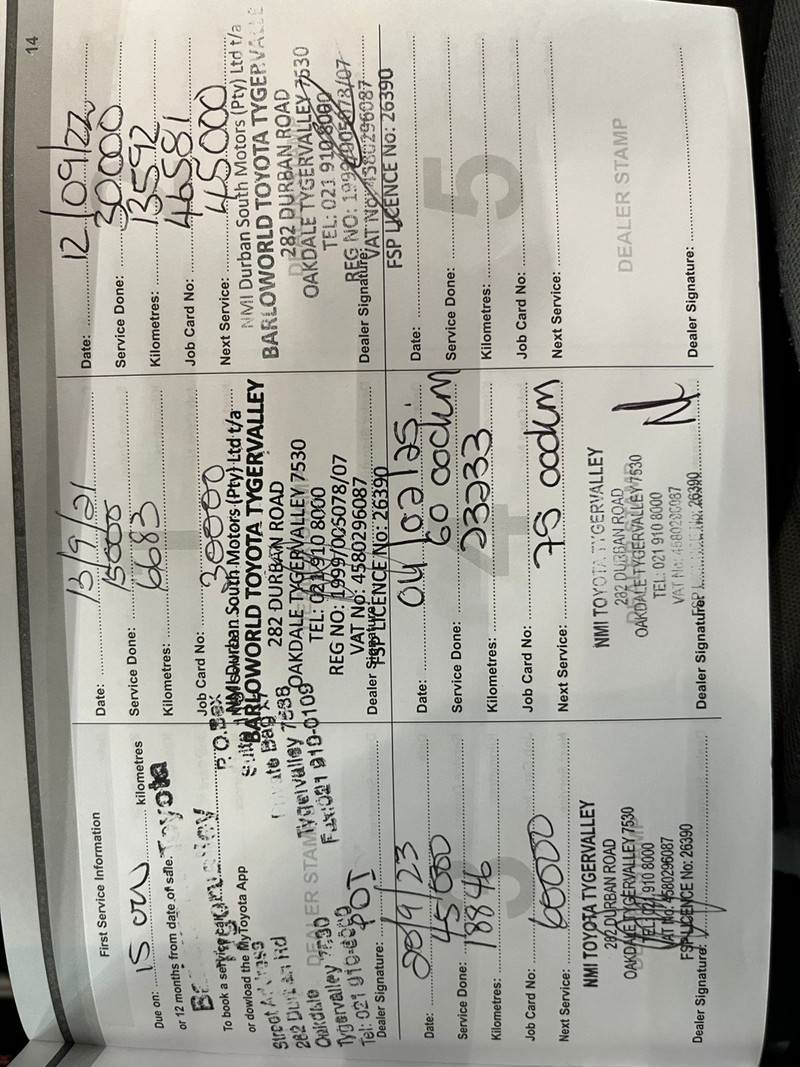 14
First Service Information
Due on: 15 000 kilometres
or 12 months from date of sale.
Toyota
To book a service call
or dowload the MyToyota App
P.O.Box
Street
282 Durban Rd
Oakdale
Tygervalley 7530
Tel: 021 910-8000
Tygervalley 7538
Fax:021 910-0109
DEALER STAMP
Dealer Signature:
PDI
Date: 13/9/21
Service Done: 15000
Kilometres: 6683
Job Card No:
30000
NMI Durban South Motors (Pty) Ltd t/a
BARLOWORLD TOYOTA TYGERVALLEY
282 DURBAN ROAD
OAKDALE TYGERVALLEY 7530
TEL: 021 910 8000
REG NO: 1999/005078/07
VAT No: 4580296087
FSP LICENCE No: 26390
Dealer Signature:
Date: 12/09/22
Service Done: 30000
Kilometres: 13592
Job Card No: 46581
Next Service: 45000
NMI Durban South Motors (Pty) Ltd t/a
BARLOWORLD TOYOTA TYGERVALLEY
282 DURBAN ROAD
OAKDALE TYGERVALLEY 7530
TEL: 021 910 8000
REG NO: 1999/005078/07
VAT No: 4580296087
FSP LICENCE No: 26390
Dealer Signature:
3
Date: 20/9/23
Service Done: 45/000
Kilometres: 18846
Job Card No:
Next Service: 60000
NMI TOYOTA TYGERVALLEY
282 DURBAN ROAD
OAKDALE TYGERVALLEY 7530
TEL: 021 910 8000
VAT No: 4580296087
FSP LICENCE No: 26390
Dealer Signature:
4
Date: 04/02/25.
Service Done: 60 000km
Kilometres: 23233
Job Card No:
Next Service: 75 000km
NMI TOYOTA TYGERVALLEY
282 DURBAN ROAD
OAKDALE TYGERVALLEY 7530
TEL: 021 910 8000
VAT No: 4580296087
FSP No: 26390
Dealer Signature:
5
Date:
Service Done:
Kilometres:
Job Card No:
Next Service:
DEALER STAMP
Dealer Signature: